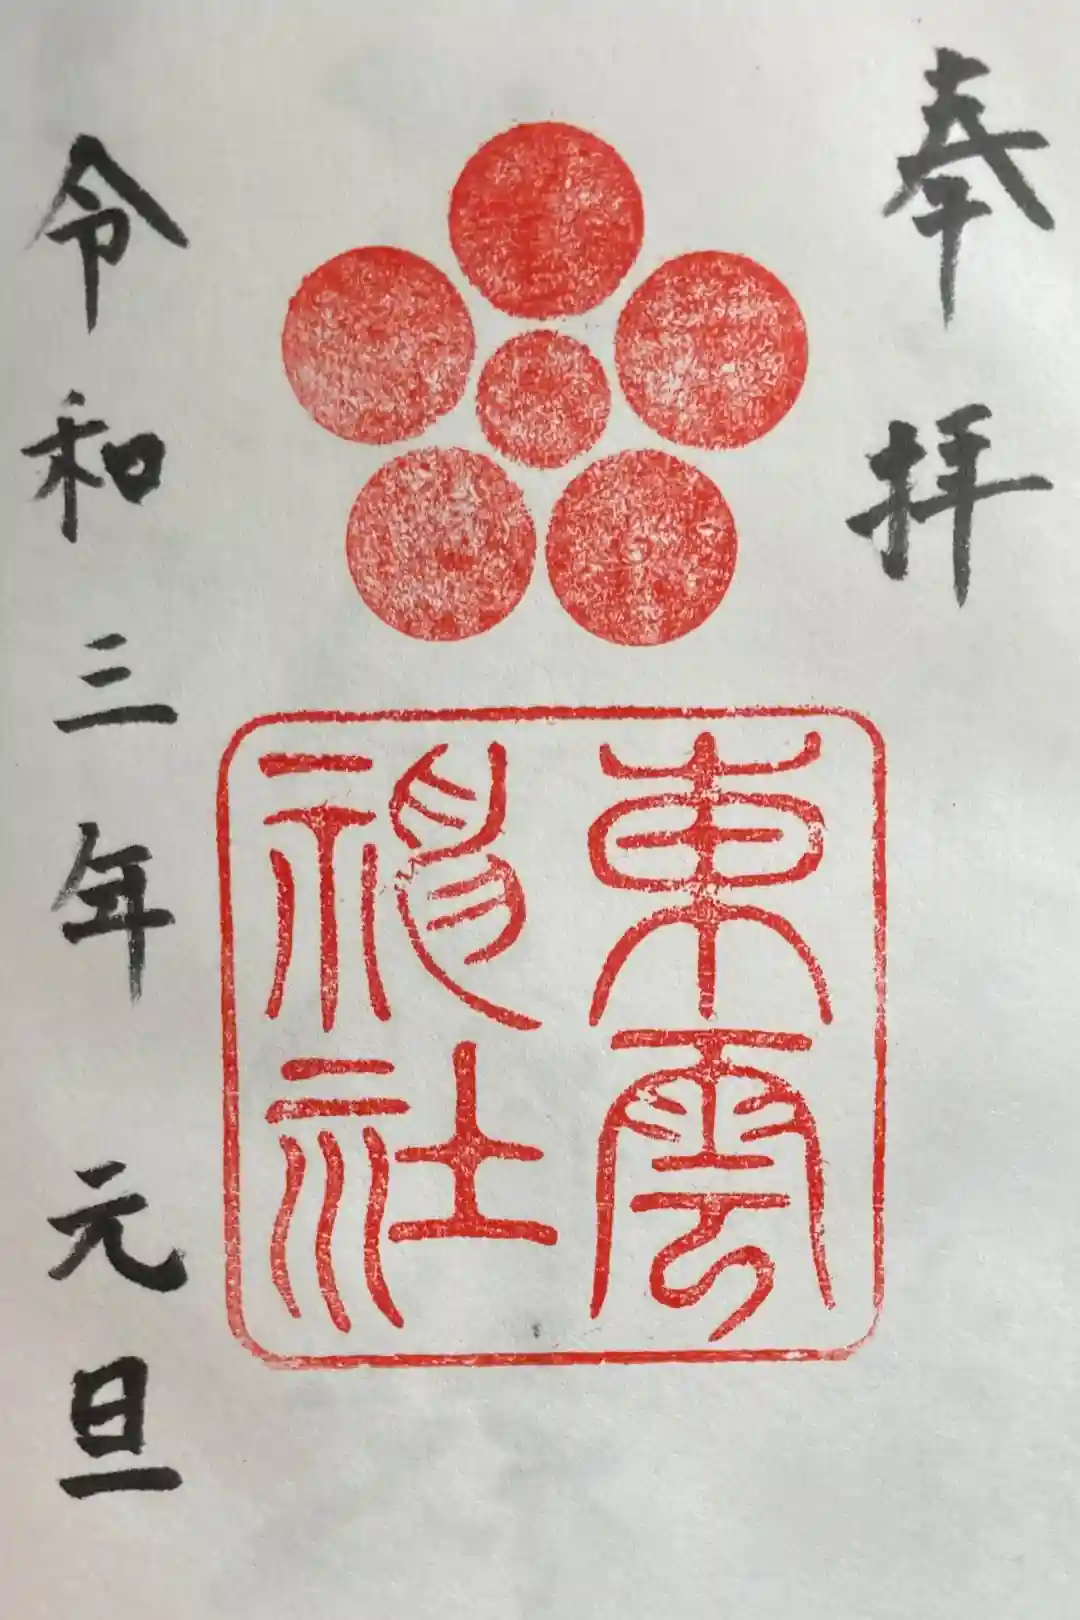 奉拝
東雲
神社
令和三年 元旦